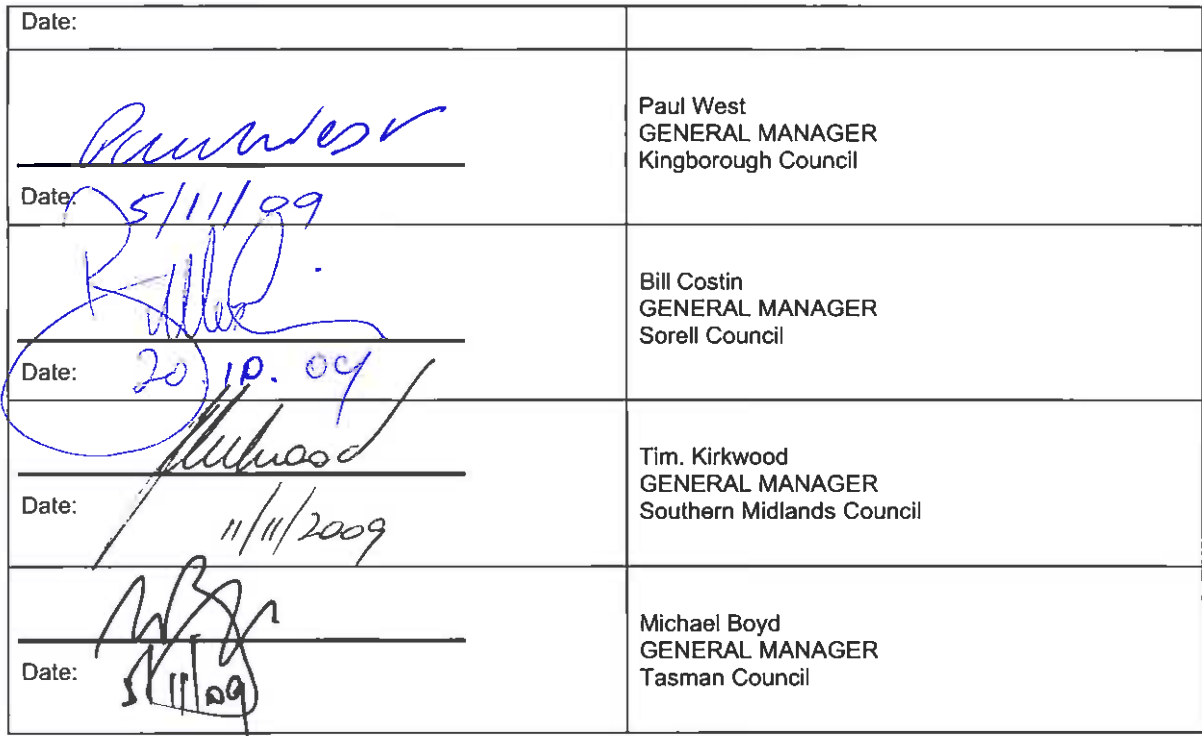 Date:
Paul West
Paul West
GENERAL MANAGER
Kingborough Council
Date: 5/11/09
Bill Costin
GENERAL MANAGER
Sorell Council
Date: 20.10.09
Tim. Kirkwood
GENERAL MANAGER
Southern Midlands Council
Date: 11/11/2009
Michael Boyd
GENERAL MANAGER
Tasman Council
Date: 5/11/09